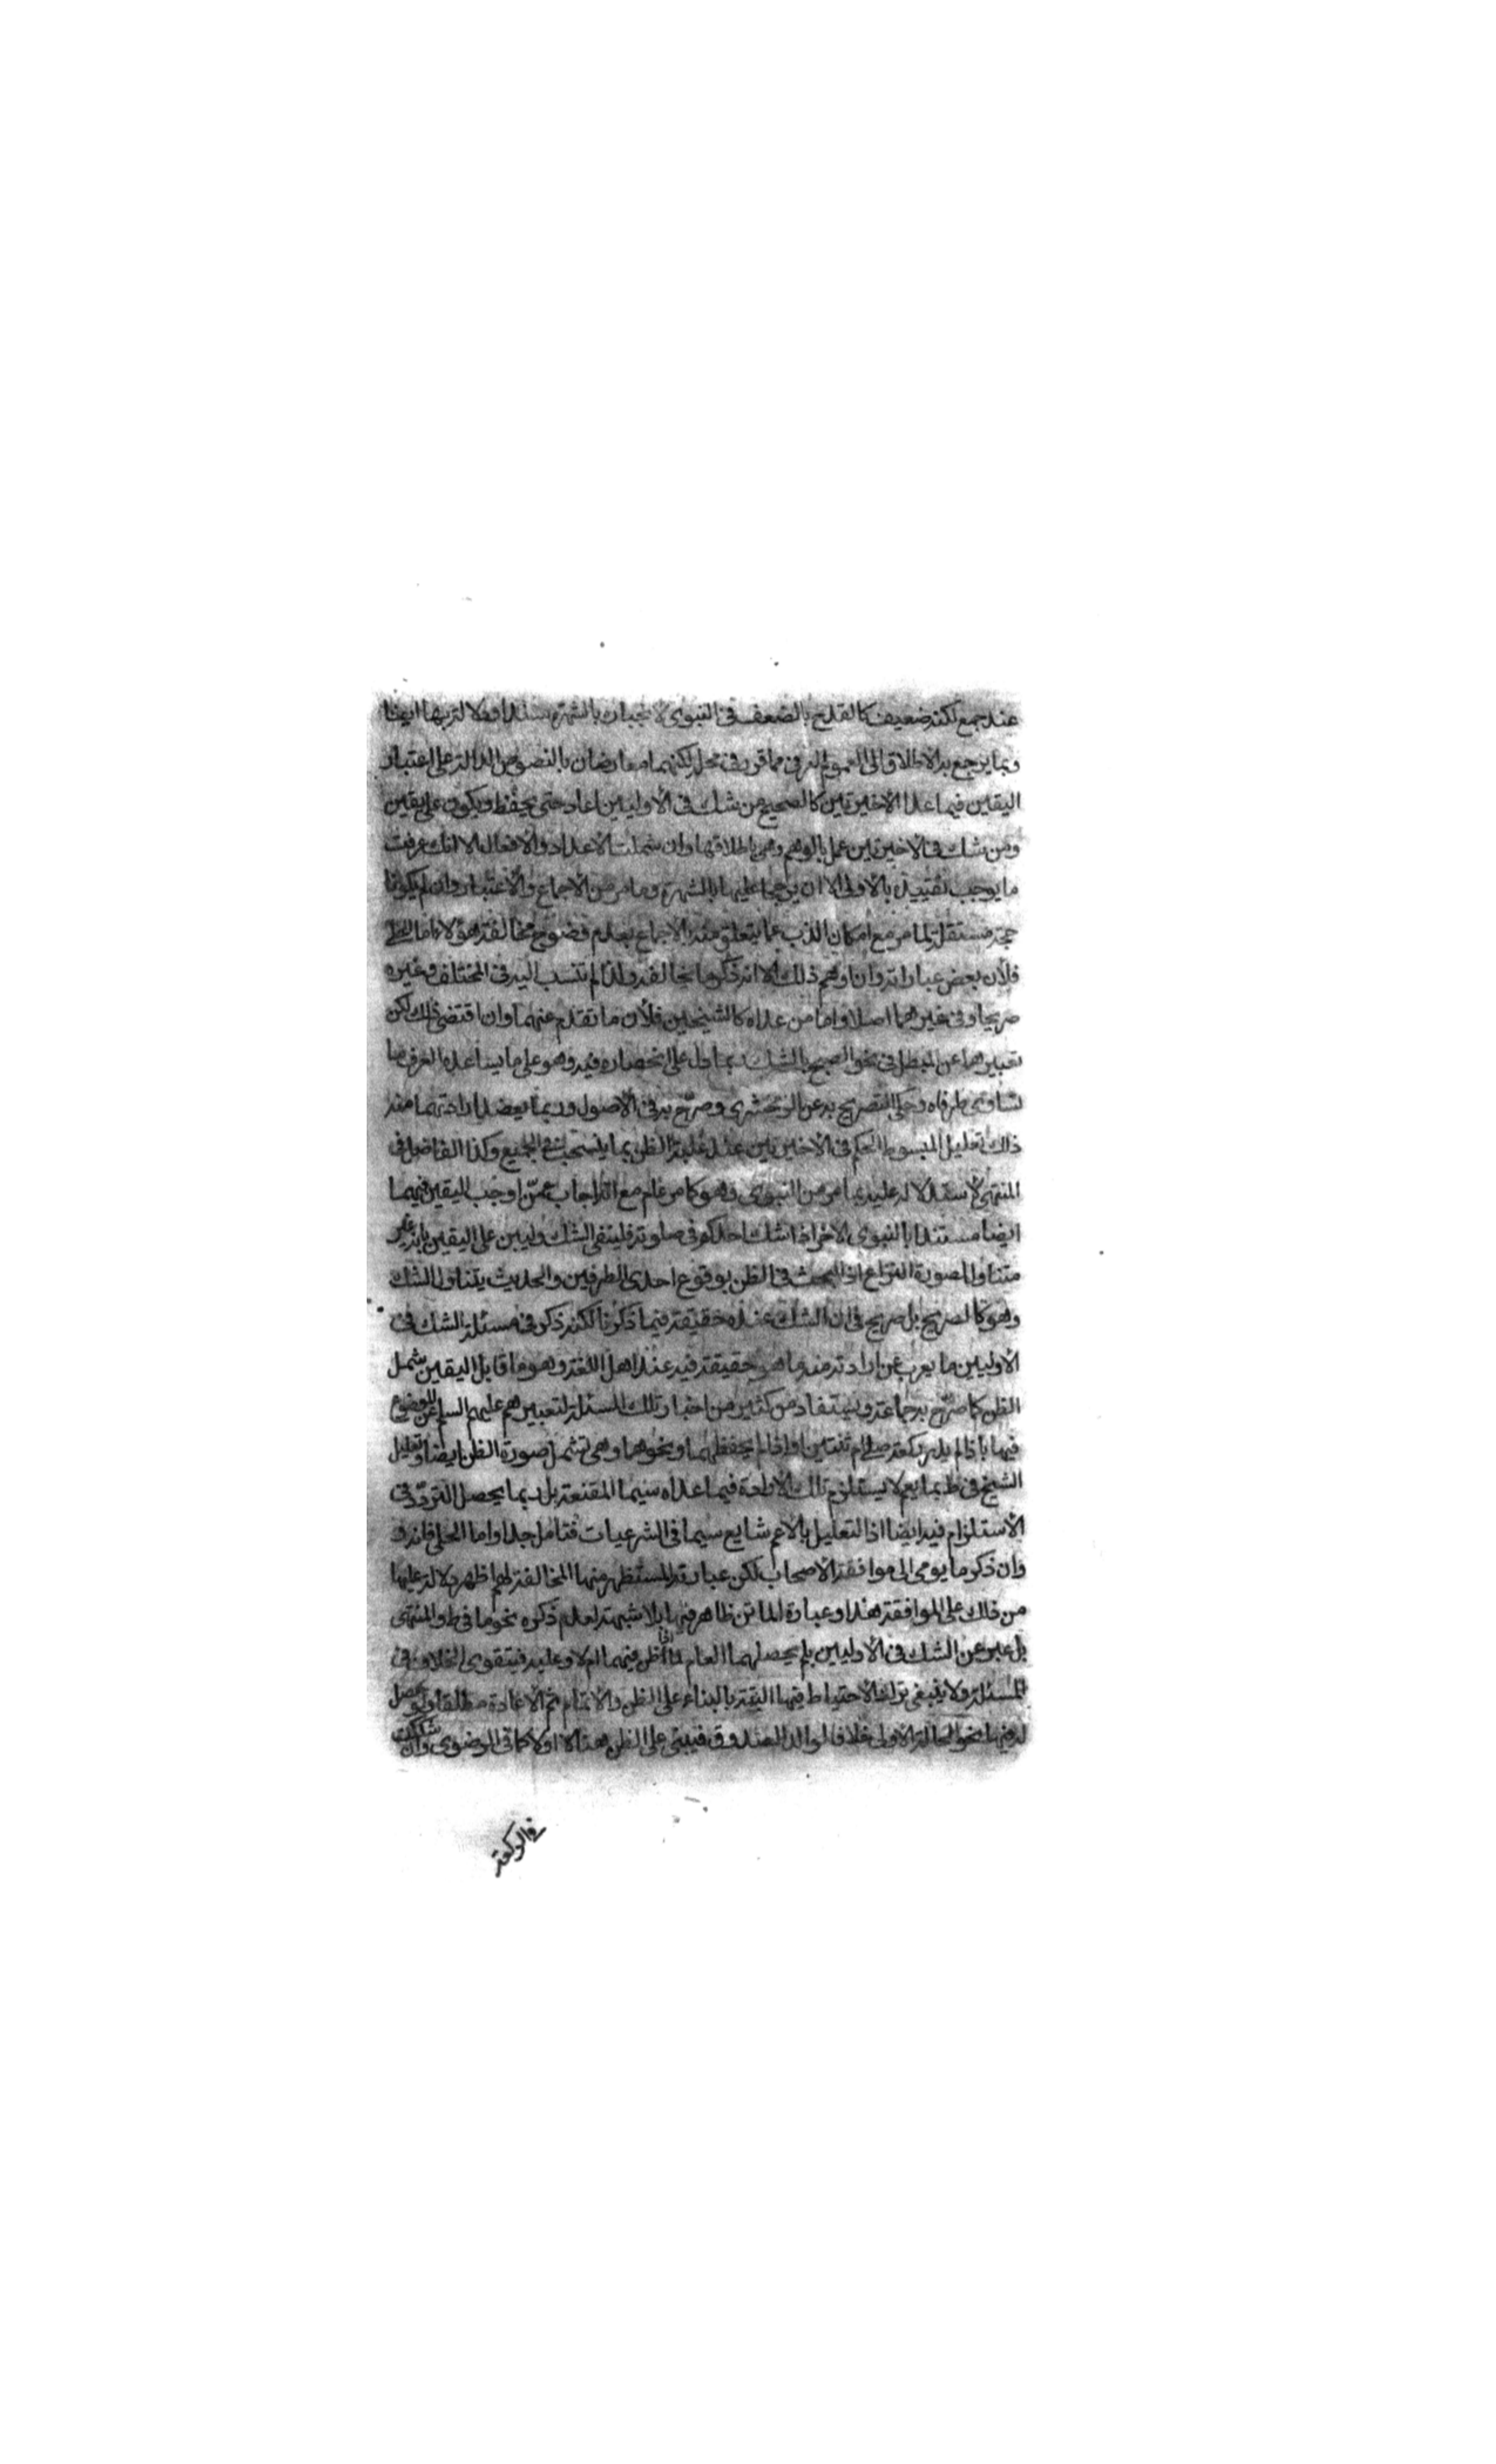 عند جمع لكنه ضعيف كالقدح بالضعف في النبوي لانجباره بالشهرة سندا ودلالة بها ايضا
وبما يرجع به الاطلاق الى العموم العرفي مما قرر في محله لكنهما معارضان بالنصوص الدالة على اعتبار
اليقين فيما عدا الاخيرتين كالصحيح من شك في الاوليين اعاد حتى يحفظ ويكون على يقين
ومن شك في الاخيرتين عمل بالوهم وهي باطلاقها وان شملت الاعداد والافعال الا انك عرفت
ما يوجب تقييده بالاولى الا ان يرجحا عليها بالشهرة وما مر من الاجماع والاعتبار وان لم يكونا
حجة مستقلة لما مر مع امكان الذب عما يتعلق منه الاجماع بعدم وضوح مخالفة هؤلاء اما الحلي
فلأن بعض عباراته وان اوهم ذلك الا انه ذكر ما يخالفه ولذا لم تنسب اليه في المختلف وغيره
صريحا وفي غيرهما اصلا واما من عداه كالشيخين فلأن ما تقدم عنهما وان اقتضى ذلك لكن
تعبيرهما عن المبطل في نحو الصبح بالشك ربما دل على انحصاره فيه وهو على ما يساعده العرف ما
تساوى طرفاه وحكي التصريح به عن الزمخشري وصرح به في الاصول وربما يعضد ارادتهما منه
ذلك تعليل المبسوط الحكم في الاخيرتين عند غلبة الظن بما ينسحب في الجميع وكذا الفاضل في
المنتهى لاستدلاله عليه بما مر من النبوي وهو كما مر عام مع انه اجاب عمن اوجب اليقين فيهما
ايضا مستندا بالنبوي الاخر اذا شك احدكم في صلوته فليلق الشك وليبن على اليقين بانه غير
متناول لصورة النزاع اذ البحث في الظن بوقوع احدى الطرفين والحديث يتناول الشك
وهو كالصريح بل صريح في ان الشك عنده حقيقة فيما ذكرنا لكنه ذكر في مسئلة الشك في
الاوليين ما يعرب عن ارادته منه ما هو حقيقة فيه عند اهل اللغة وهو ما قابل اليقين يشمل
الظن كما صرح به جماعة ويستفاد من كثير من اخبار تلك المسئلة لتعبيرهم عليهم السلم عن الموضوع
فيها باذا لم يدر ركعة صلى ام ثنتين او اذا لم يحفظهما ونحوهما وهي تشمل صورة الظن ايضا وتعليل
الشيخ في ط بما يعم لا يستلزم تلك الارادة فيما عداه سيما المقنعة بل ربما يحصل التردد في
الاستلزام فيه ايضا اذ التعليل بالاعم شايع سيما في الشرعيات فتامل جدا واما الحلي فانه و
وان ذكر ما يومى الى موافقة الاصحاب لكن عبارته المستظهر منها المخالفة لهم اظهر دلالة عليها
من ذلك على الموافقة هذا وعبارة الماتن ظاهر فيها بلا شبهة لعدم ذكره نحو ما في ط والمنتهى
بل عبر عن الشك في الاوليين بلم يحصلهما العام لما اذا ظن فيهما ام لا وعليه فيتقوى الخلاف في
المسئلة ولا ينبغي ترك الاحتياط فيها اليقة بالبناء على الظن والاتمام ثم الاعادة مطلقا ولو حصل
له فيها نحو الحالة الاولى خلافا لوالد الصدوق فيبنى على الظن هنا لا اولا كما في الرضوي وان شككت
في الركعة